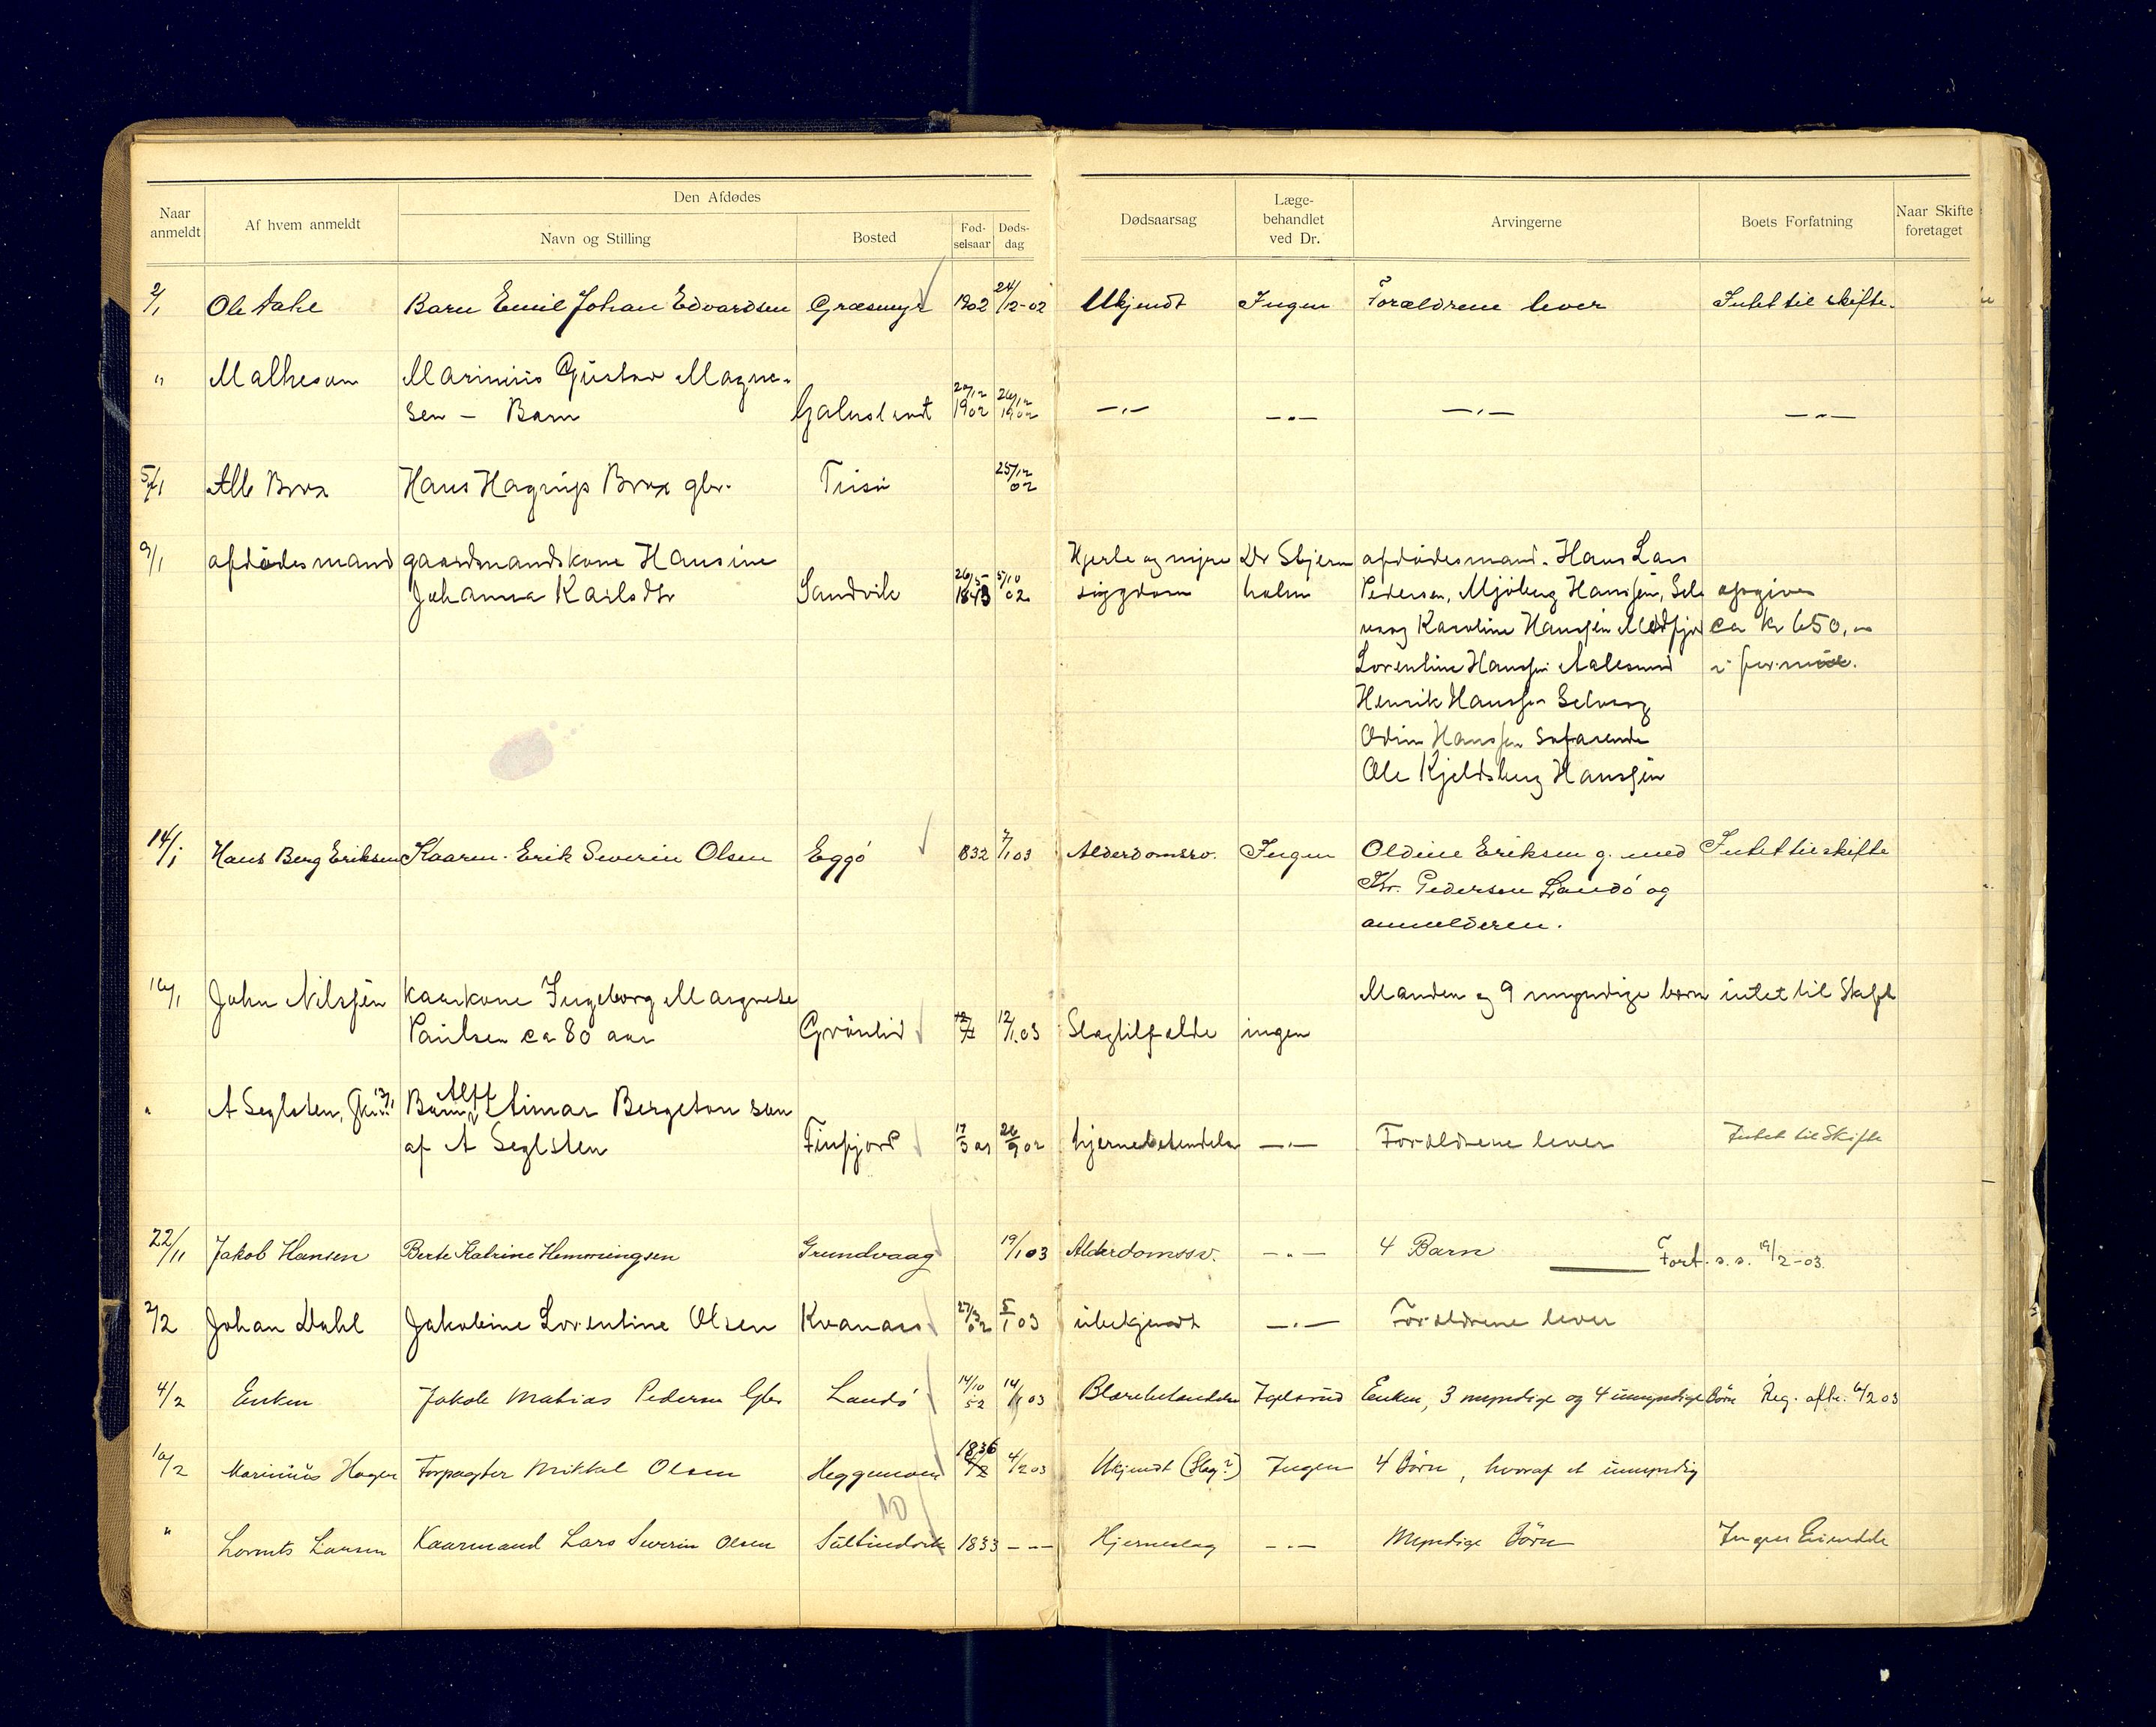 Naar anmeldt
Af hvem anmeldt
Den Afdødes
Navn og Stilling
Bosted
Fød-selsaar
Døds-dag
Dødsaarsag
Læge-behandlet ved Dr.
Arvingerne
Boets Forfatning
Naar Skifte foretaget
2/1 Ole Aake Barn Emil Johan Edvardsen Græsmyr 1902 24/12-02 Ukjendt Ingen Forældrene lever Intet til skifte.
" Marinius Gustav Magne-
sen - Barn 1902 26/12 1902 —„— —„— —„— —„—
5/1 Hans Hagrup Brox gbr. 25/12 02
9/1 afdødes mand gaardmandskone Hansine Hjerte og nyre Dr Stjern afdødes mand. Hans Lars
Johanna Karlsdtr Sandvik 1843 5/10 02 sygdom holm Pedersen, Mjöberg Hanssen, Sel opgives
vaag Karoline Hanssen Medfjor ca kr 650,
Lorentine Hanssen Aalesund
Henrik Hanssen Selvaag
Odin Hanssen Søfarende
Ole Kjeldsberg Hanssen
14/1 Hans Berg Eriksen Kaarm. Erik Severin Olsen Eggö 832 7/1 03 Alderdomssv. Ingen Oldine Eriksen g. med Intet til skifte
Kr. Pedersen Landö og
anmelderen.
16/1 John Nilssen Kaarkone Ingeborg Margrete Manden og 9 myndige børn intet til Skifte
Paulsen ca 80 aar Grönlid 12/1.03 Slagtilfælde ingen
" A Seglsten, 13/1 Barn Alff Aimar Bergeton søn
af A Seglsten Finfjord 17/3 01 26/9 02 hjernebetendelse —„— Forældrene lever Intet til Skifte
22/11 Jakob Hansen Berte Katrine Hemmingsen Grundvaag 19/1 03 Alderdomssv. —„— 4 Barn Forf. s. s. 19/2-03.
2/2 Johan Dahl Jakobine Lorentine Olsen Kvanaas 27/3 02 5/1 03 ubekjendt —„— Forældrene lever
4/2 Enken Jakob Mathias Pedersen Gbr Landö 14/10 52 14/1 03 Blærebetændelse Igelsrud Enken, 3 myndige og 4 umyndige Børn Reg. afh. 6/2 03
10/2 Marinius Hagen Forpagter Mikkal Olsen Heggemoen 1836 4/2 03 Ukjendt (Slag?) Ingen 4 Børn, hvoraf et umyndig
10
" Lorents Larsen Kaarmand Lars Severin Olsen Sultindvik 1833 — — Hjerneslag —„— Myndige Børn Ingen Eiendele